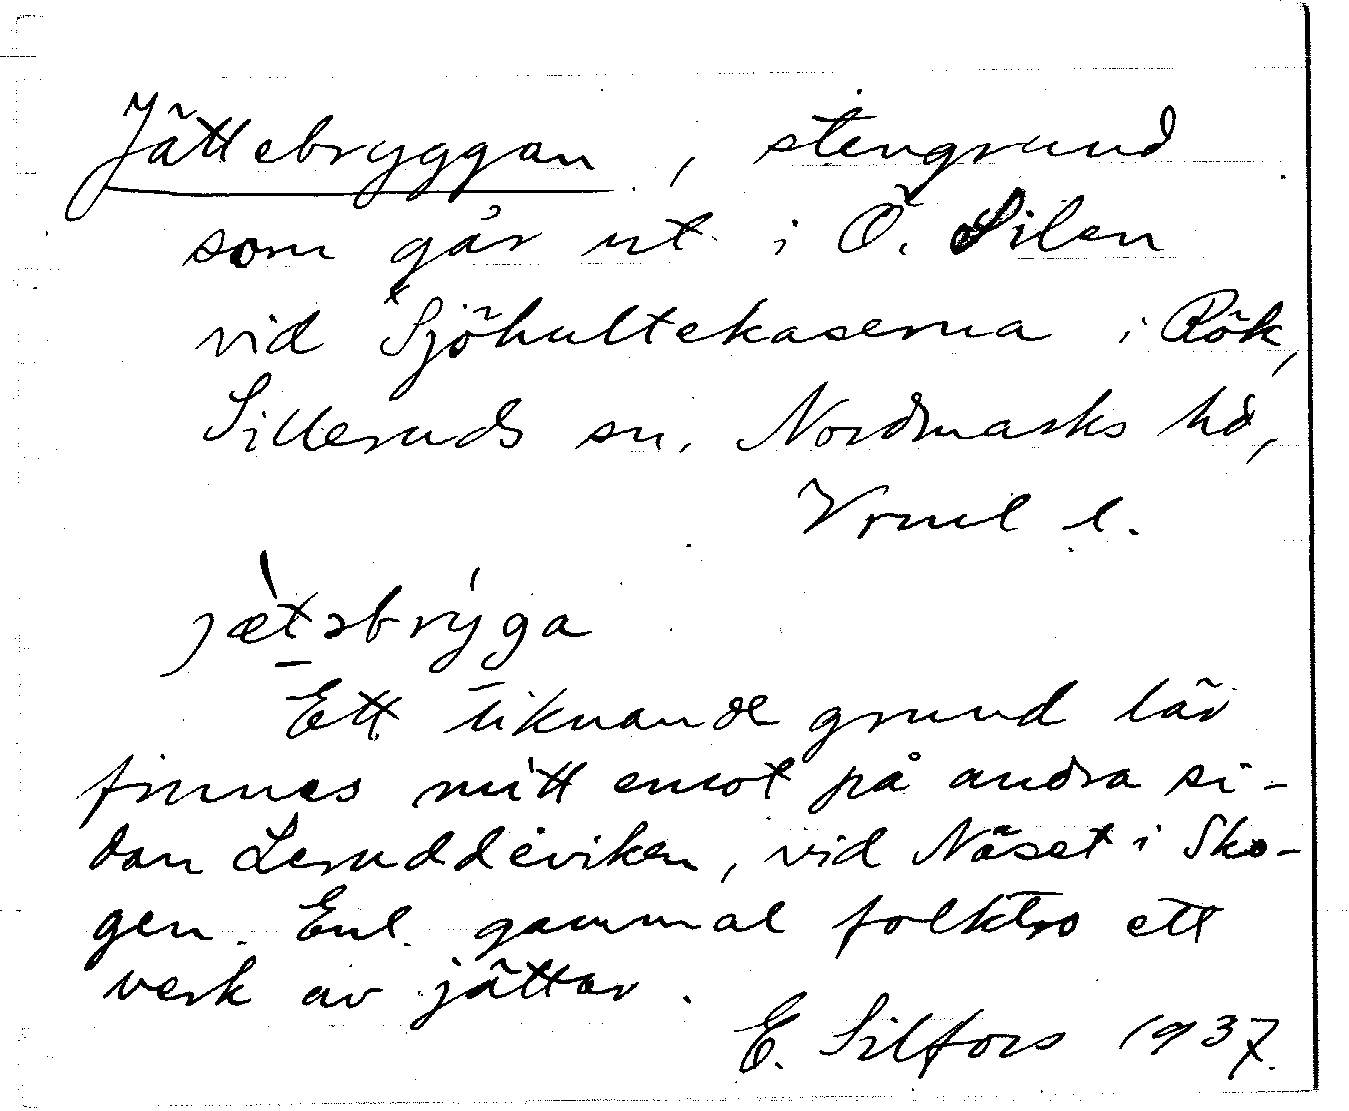 Jättebryggan, stengrund
som går ut i Ö. Silen
vid Sjöhultekaserna i Rök,
Silleruds sn. Nordmarks hd,
Vrml l.
jætəbrýga
Ett liknande grund lär
finnes mitt emot på andra si-
dan Leruddeviken, vid Näset i Sko-
gen. Enl. gammal folktro ett
verk av jättar.
E. Silfors 1937.